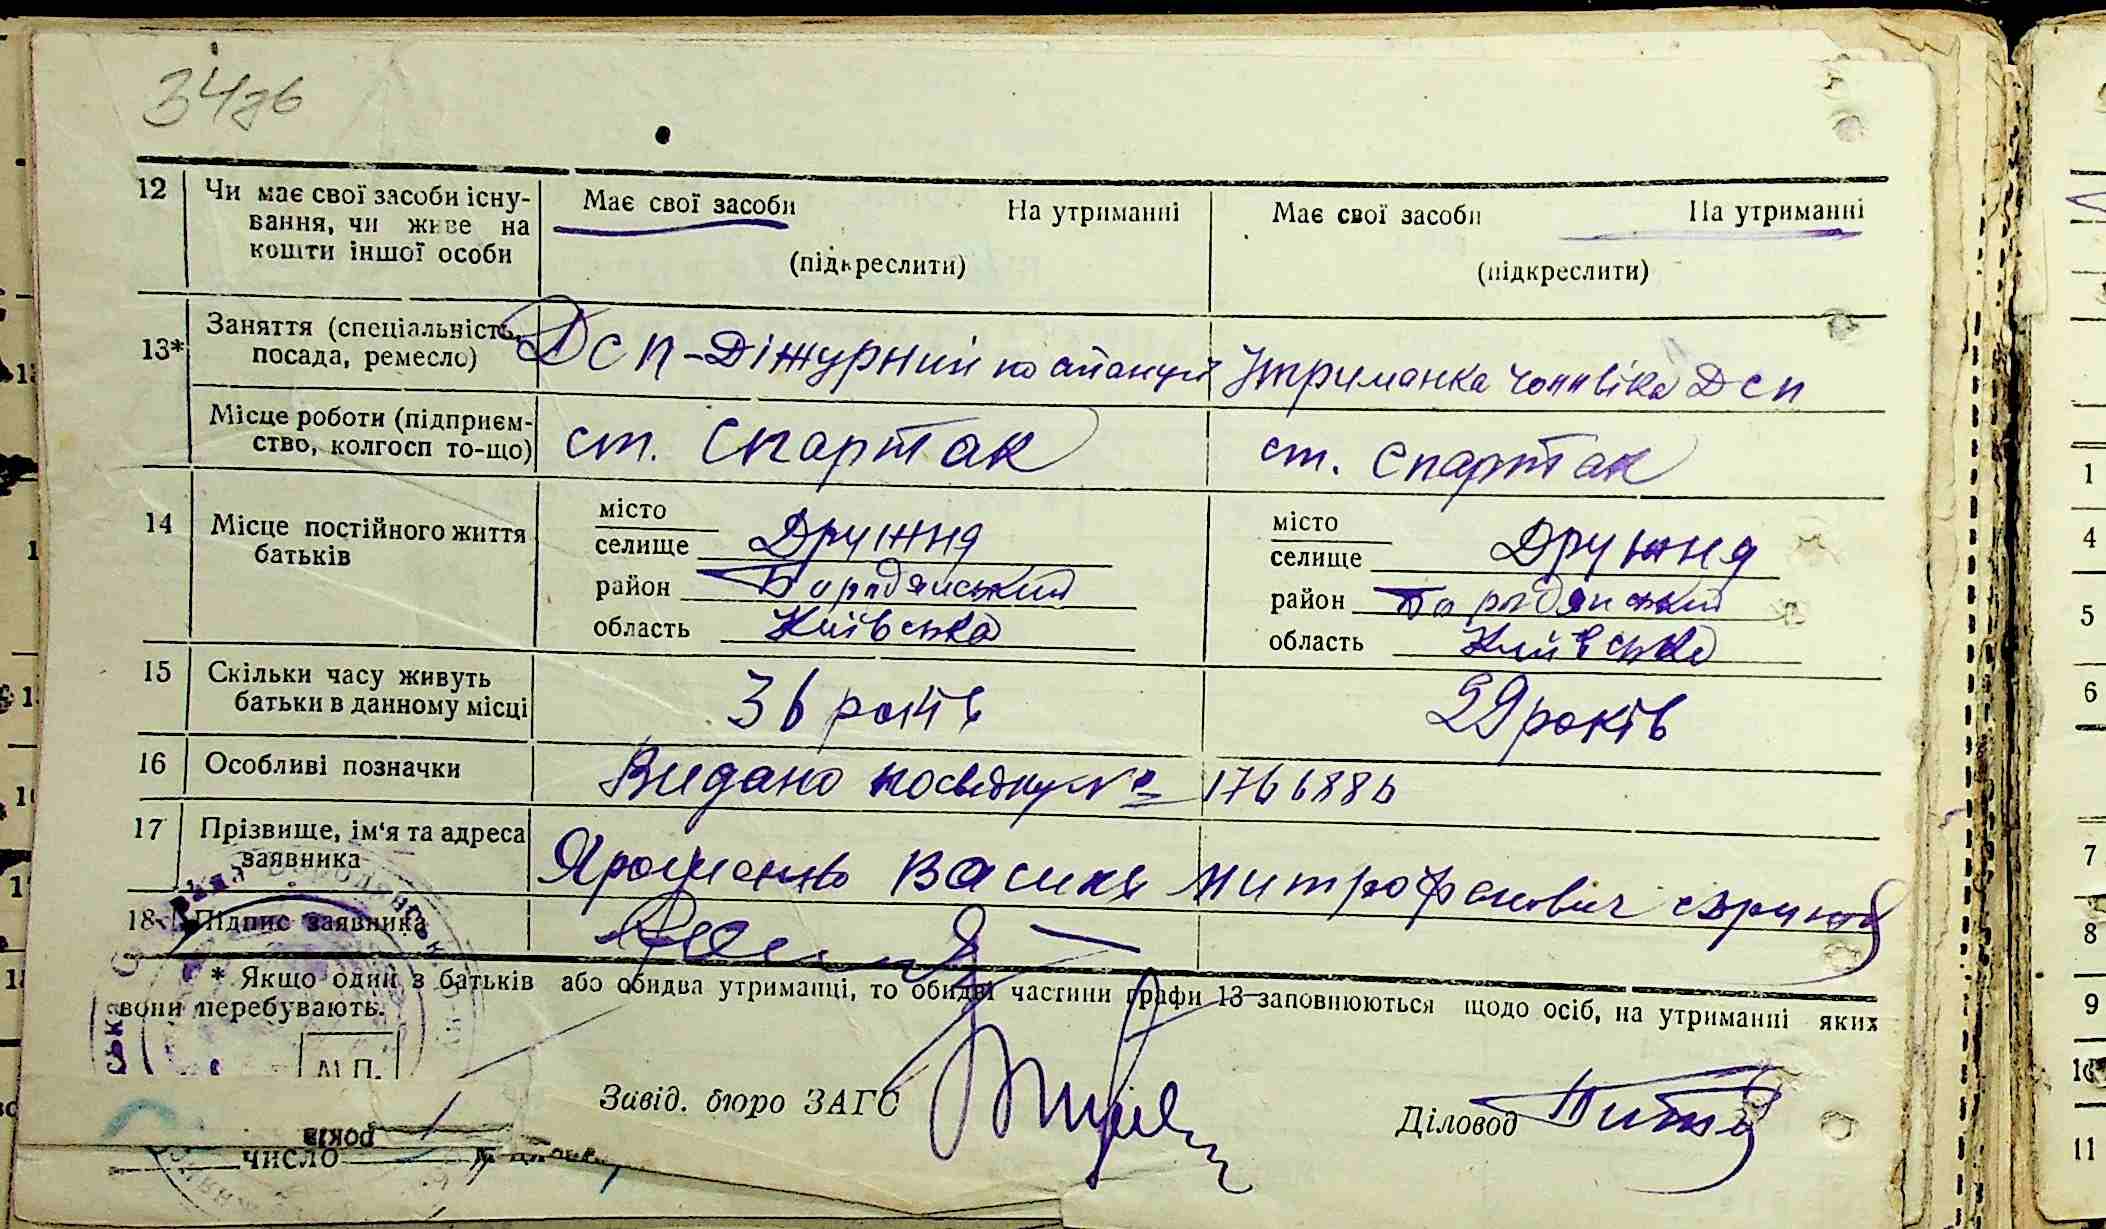 34зв
12 Чи має свої засоби існу- Має свої засоби На утриманні Має свої засоби На утриманні
вання, чи живе на
кошти іншої особи (підкреслити) (підкреслити)
13* Заняття (спеціальність, ДСП-Діжурний по станції Утриманка чоловіка ДСП
посада, ремесло)
Місце роботи (підприєм- ст. Спартак ст. Спартак
ство, колгосп то-що)
14 Місце постійного життя місто місто
батьків селище Дружня селище Дружня
район Бородянський район Бородянський
область Київська область Київська
15 Скільки часу живуть 36 років 29 років
батьки в данному місці
16 Особливі позначки Видано посвідку № 1766886
17 Прізвище, ім'я та адреса
заявника Василь Митрофанович с Дружня
18 Підпис заявника
* Якщо один з батьків або обидва утриманці, то обидві частини графи 13 заповнюються щодо осіб, на утриманні яких
вони перебувають.
М П.
Завід. бюро ЗАГС Діловод
років
число
1
4
5
6
7
8
9
10
11